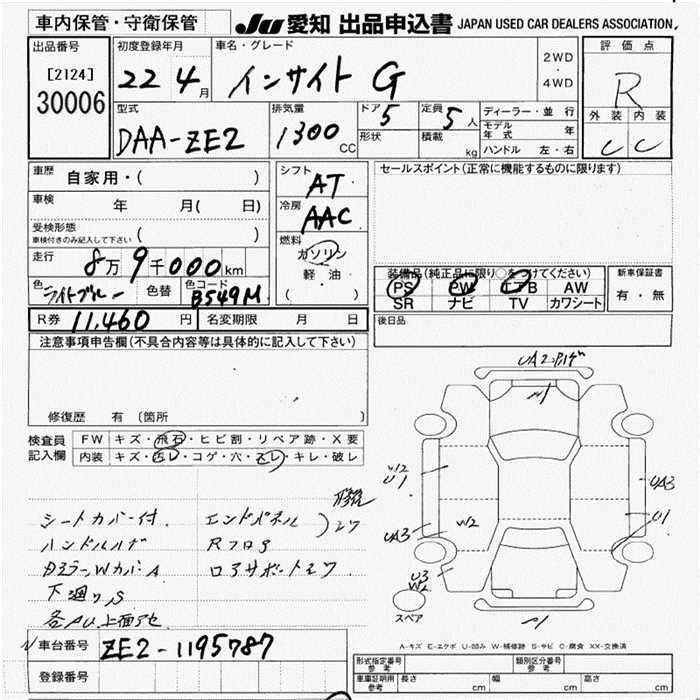 車内保管・守衛保管
JU 愛知 出品申込書 JAPAN USED CAR DEALERS ASSOCIATION
出品番号
[2124]
30006
初度登録年月
22 4月
車名・グレード
インサイト G
2WD
・
4WD
評価点
R
外装 内装
C C
型式
DAA-ZE2
排気量
1300 CC
ドア 5
形状
定員 5人
積載 kg
ディーラー・並行
モデル年式 年
ハンドル 左・右
車歴 自家用・( )
車検 年 月( 日)
受検形態
車検付きのみ記入して下さい ( )
走行 8万9千000km
色 ライトブルー 色替 色コード B549M
R券 11,460円 名変期限 月 日
シフト AT
冷房 AAC
燃料
ガソリン
軽・油
( )
セールスポイント(正常に機能するものに限ります)
装備品(純正品に限り○をつけてください)
PS PW エアB AW
SR ナビ TV カワシート
新車保証書
有・無
後日品
注意事項申告欄(不具合内容等は具体的に記入して下さい)
修復歴 有 〔箇所 〕
検査員記入欄
FW キズ・飛石・ヒビ割・リペア跡・X要
内装 キズ・汚レ・コゲ・穴・スレ・キレ・破レ
シートカバー付
ハンドルハゲ
下廻りS
エンドパネル
Rフロア
車台番号 ZE2-1195787
登録番号
UA2
U1
UA3
W2
U3
W2
UA3
U1
スペア
A-キズ E-エクボ U-凹み W-補修跡 S-サビ C-腐食 XX-交換済
形式指定番号 参考
類別区分番号 参考
車庫証明用 参考 長さ cm 幅 cm 高さ cm